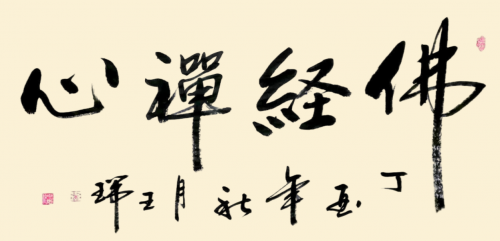 佛経禪心
丁酉年秋月王瑞